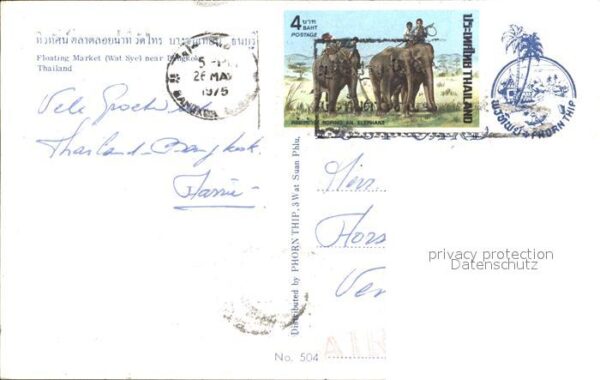 ทิวทัศน์ ตลาดลอยน้ำที่ วัดไทร บางขุนเทียน ธนบุรี
Floating Market (Wat Sye) near Bangkok
Thailand
26 MAY
1975
BANGKOK
4 บาท
BAHT
POSTAGE
ประเทศไทย THAILAND
ROPING AN ELEPHANT
พรทิพย์ PHORN THIP
Thailand-Bangkok
Distributed by PHORN THIP, 3 Wat Suan Phlu,
Herr
Hors
privacy protection
Datenschutz
AIR
No. 504